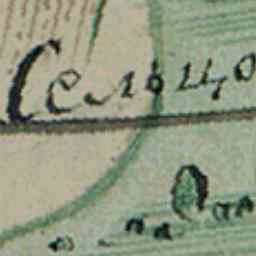 Сельцо